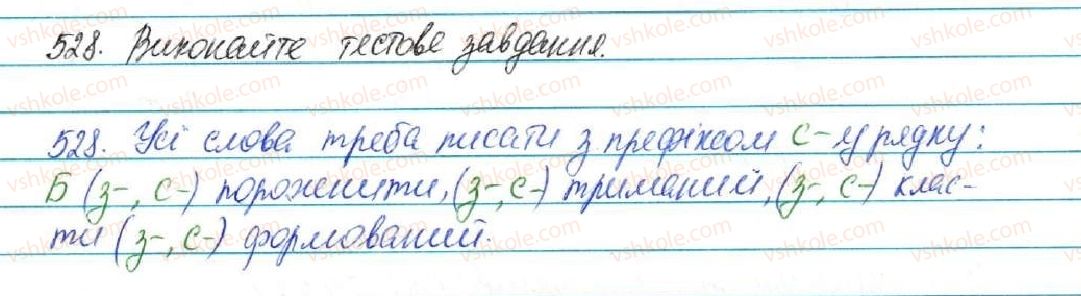 528. Виконайте тестове завдання.
528. Усі слова треба писати з префіксом с- у рядку:
Б (з-, с-) порожнити, (з-, с-) триманий, (з-, с-) клас-
ти (з-, с-) формований.